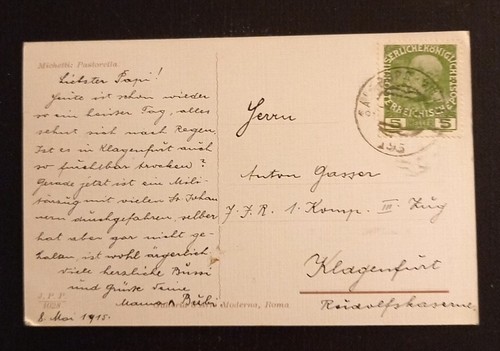 Michetti: Pastorella.
Liebster Papi!
Heute ist schon wieder
so ein heißer Tag, alles
sehnt sich nach Regen.
Ist es in Klagenfurt auch
so furchtbar trocken?
Gerade jetzt ist ein Mili-
tärzug mit vielen
durchgefahren, selber
hat aber gar nicht ge-
halten, ist wohl ärgerlich
Viele herzliche Bussi
und Grüße Deine
Mama u. Bubi
8. Mai 1915.
Moderna, Roma
Herrn
Anton Gasser
J. F. R. 1. Komp. III Zug
Klagenfurt
Rudolfskaserne
5 5